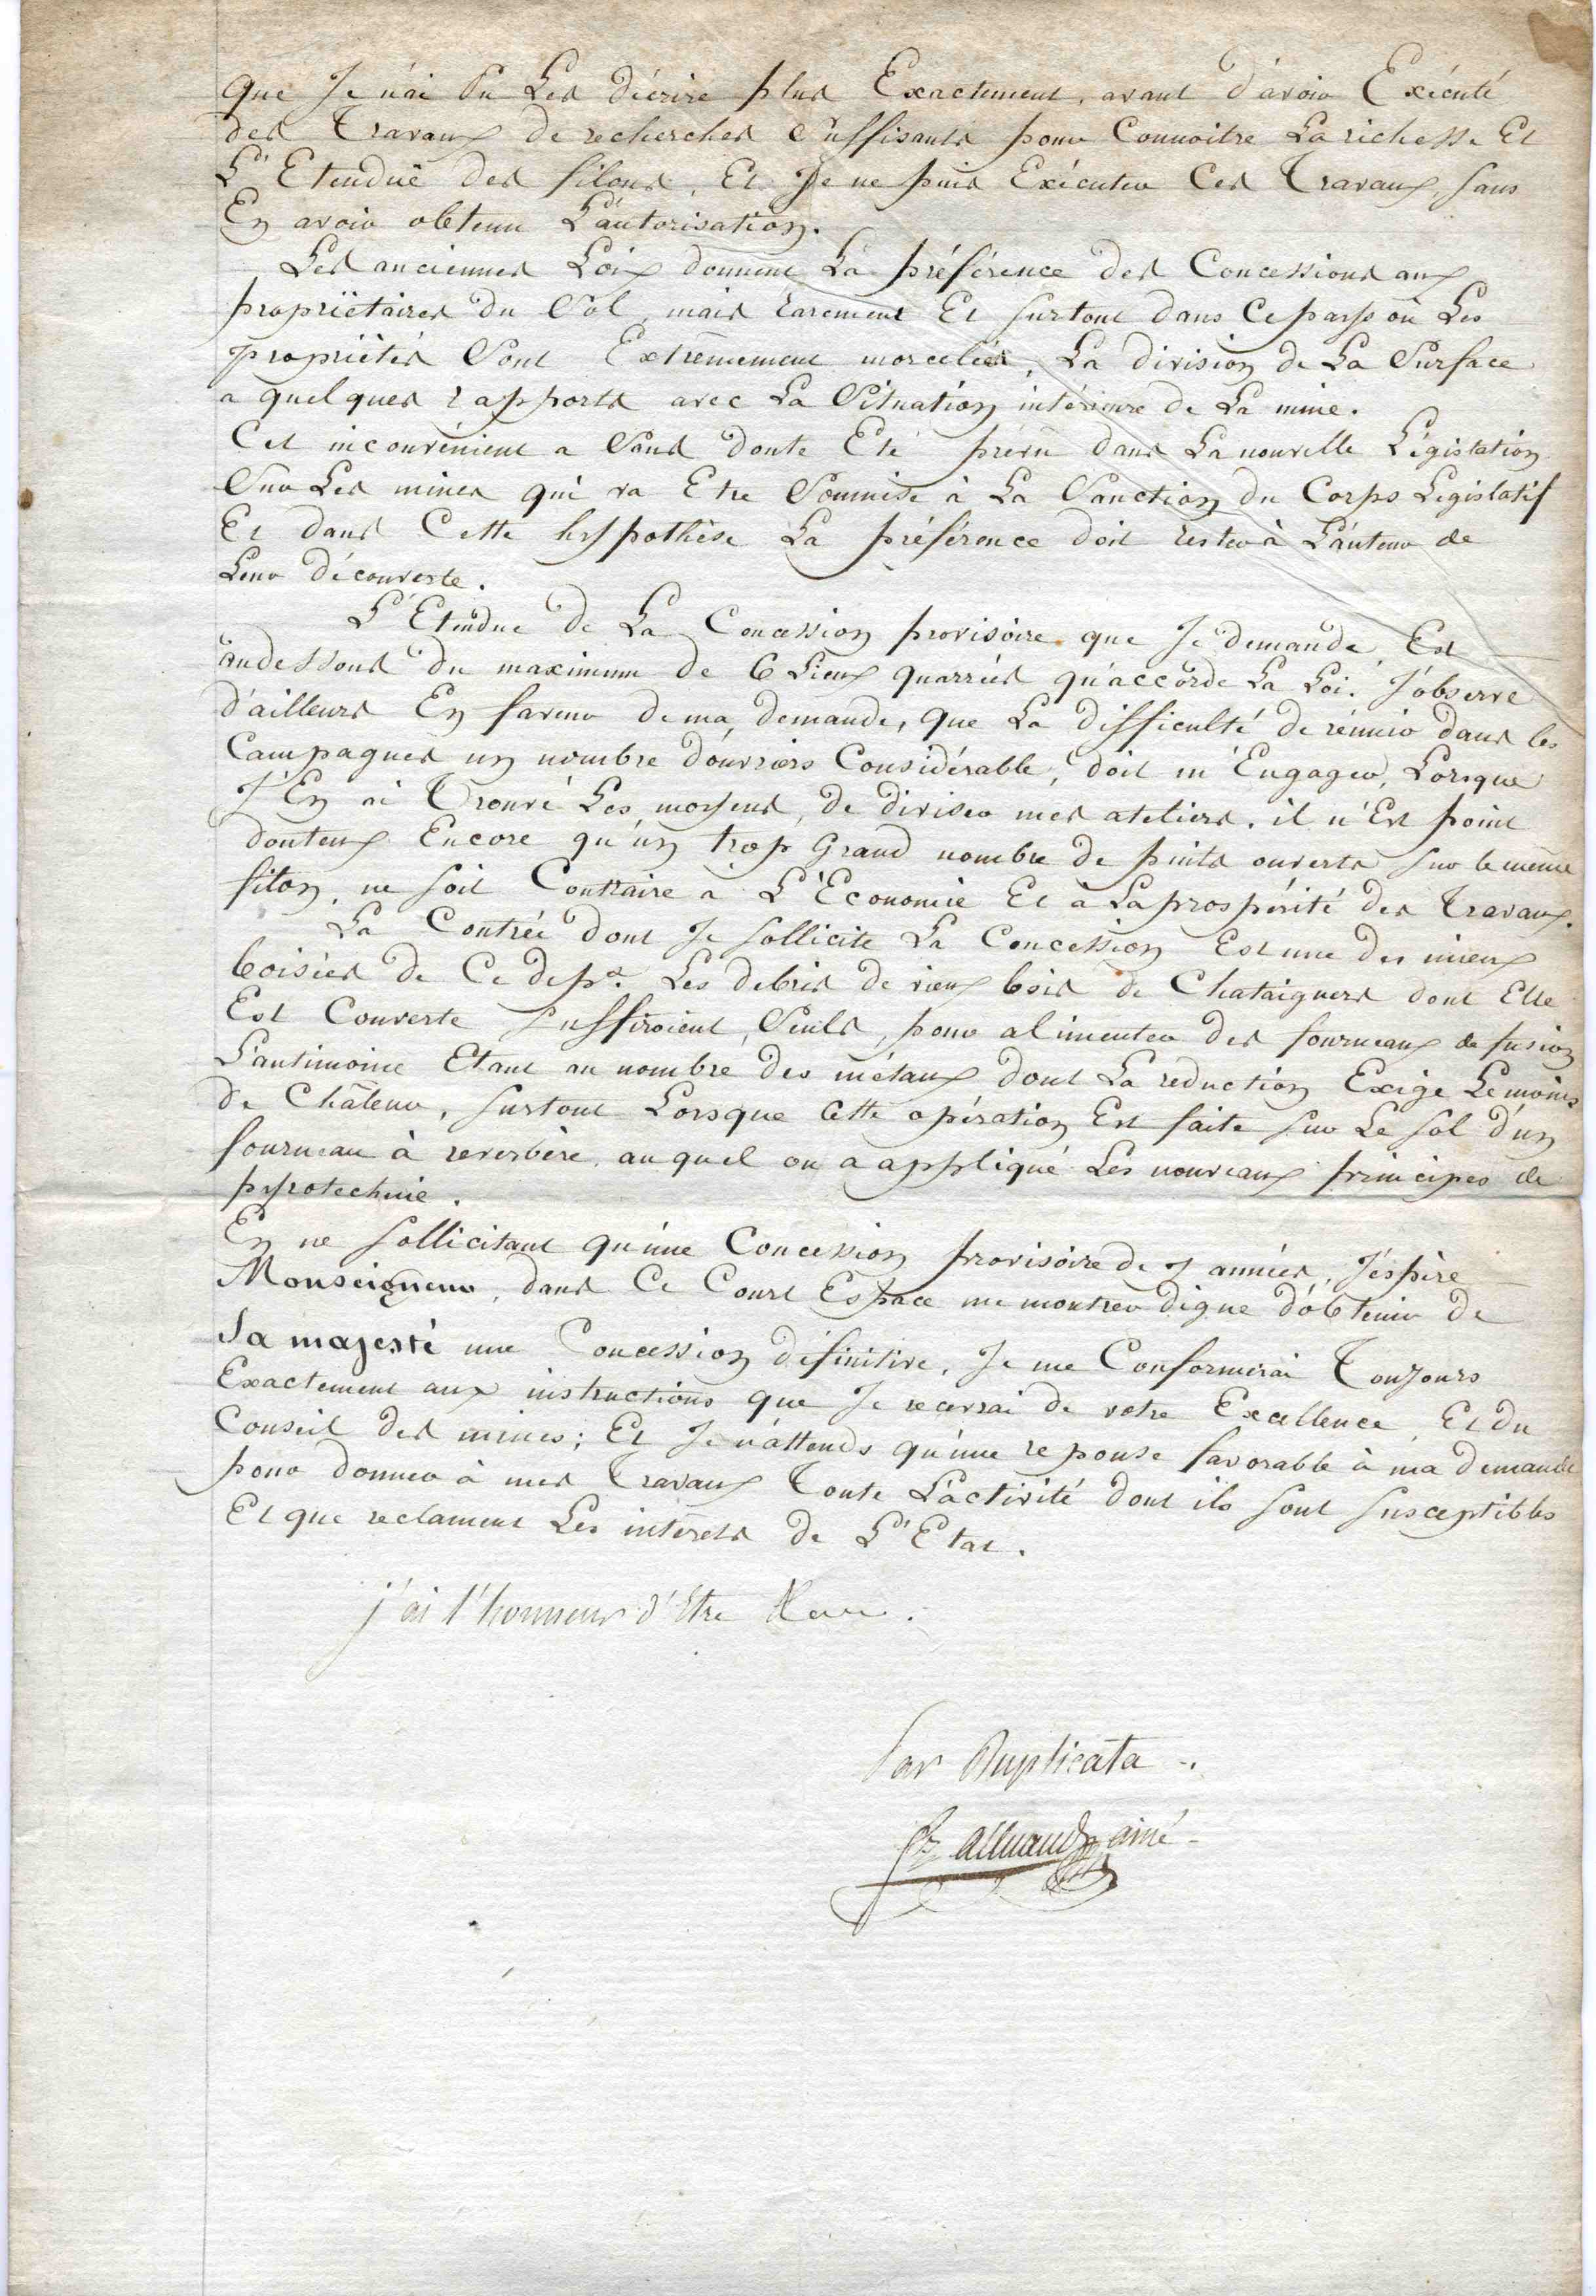 que Je n'ai Pu Les décrire plus Exactement, avant d'avoir Exécuté
des Travaux de recherches Suffisants pour Connoitre La richesse Et
L'Etenduë des filons, Et Je ne puis Exécuter Ces Travaux, sans
En avoir obtenu L'autorisation.
Les anciennes Loix donnent La préférence des Concessions aux
propriëtaires du Sol, mais rarement Et surtout dans Ce pays où Les
propriètés Sont Extrêmement morcelées, La division de La Surface
a quelques rapports avec La Situation intérieure de La mine.
Cet inconvénient a Sans doute Eté prévu dans La nouvelle Législation
Sur Les mines qui va Etre Soumise à La Sanction du Corps Legislatif
Et dans Cette hypothèse La préférence doit rester à L'auteur de
Leur découverte.
L'Etendue de La Concession provisoire que Je demande, Est
audessous du maximum de 6 Lieux quarrées qu'accorde La Loi. J'observe
d'ailleurs En faveur de ma demande, que La difficulté de réunir dans les
Campagnes un nombre d'ouvriers Considérable, doit m'Engager, Lorsque
J'En ai Trouvé Les moyens, de diviser mes ateliers. il n'Est point
douteux Encore qu'un trop Grand nombre de puits ouverts sur le même
filon, ne soit Contraire à L'Economie Et à La prospérité des Travaux.
La Contrée dont Je sollicite La Concession Est une des mieux
boisées de Ce dept. Les debris de vieux bois de Chataigners dont Elle
Est Couverte suffiroient, Seuls, pour alimenter des fourneaux de fusion
L'antimoine Etant au nombre des métaux dont La réduction Exige Le moins
de Châleur, surtout Lorsque Cette opération Est faite sur Le sol d'un
fourneau à reverbère, auquel on a appliqué Les nouveaux principes de
pyrotechnie.
En ne sollicitant qu'une Concession provisoire de 7 années, J'éspère
Monseigneur, dans Ce Court Espace me montrer digne d'obtenir de
Sa majesté une Concession définitive. Je me Conformerai Toujours
Exactement aux instructions que Je recevrai de votre Excellence, Et du
Conseil des mines; Et Je n'attends qu'une reponse favorable à ma demande
pour donner à mes Travaux Toute L'activité dont ils sont susceptibles
Et que reclament Les intérets de L'Etat.
j'ai l'honneur d'être
Par Duplicata
fs alluaud ainé